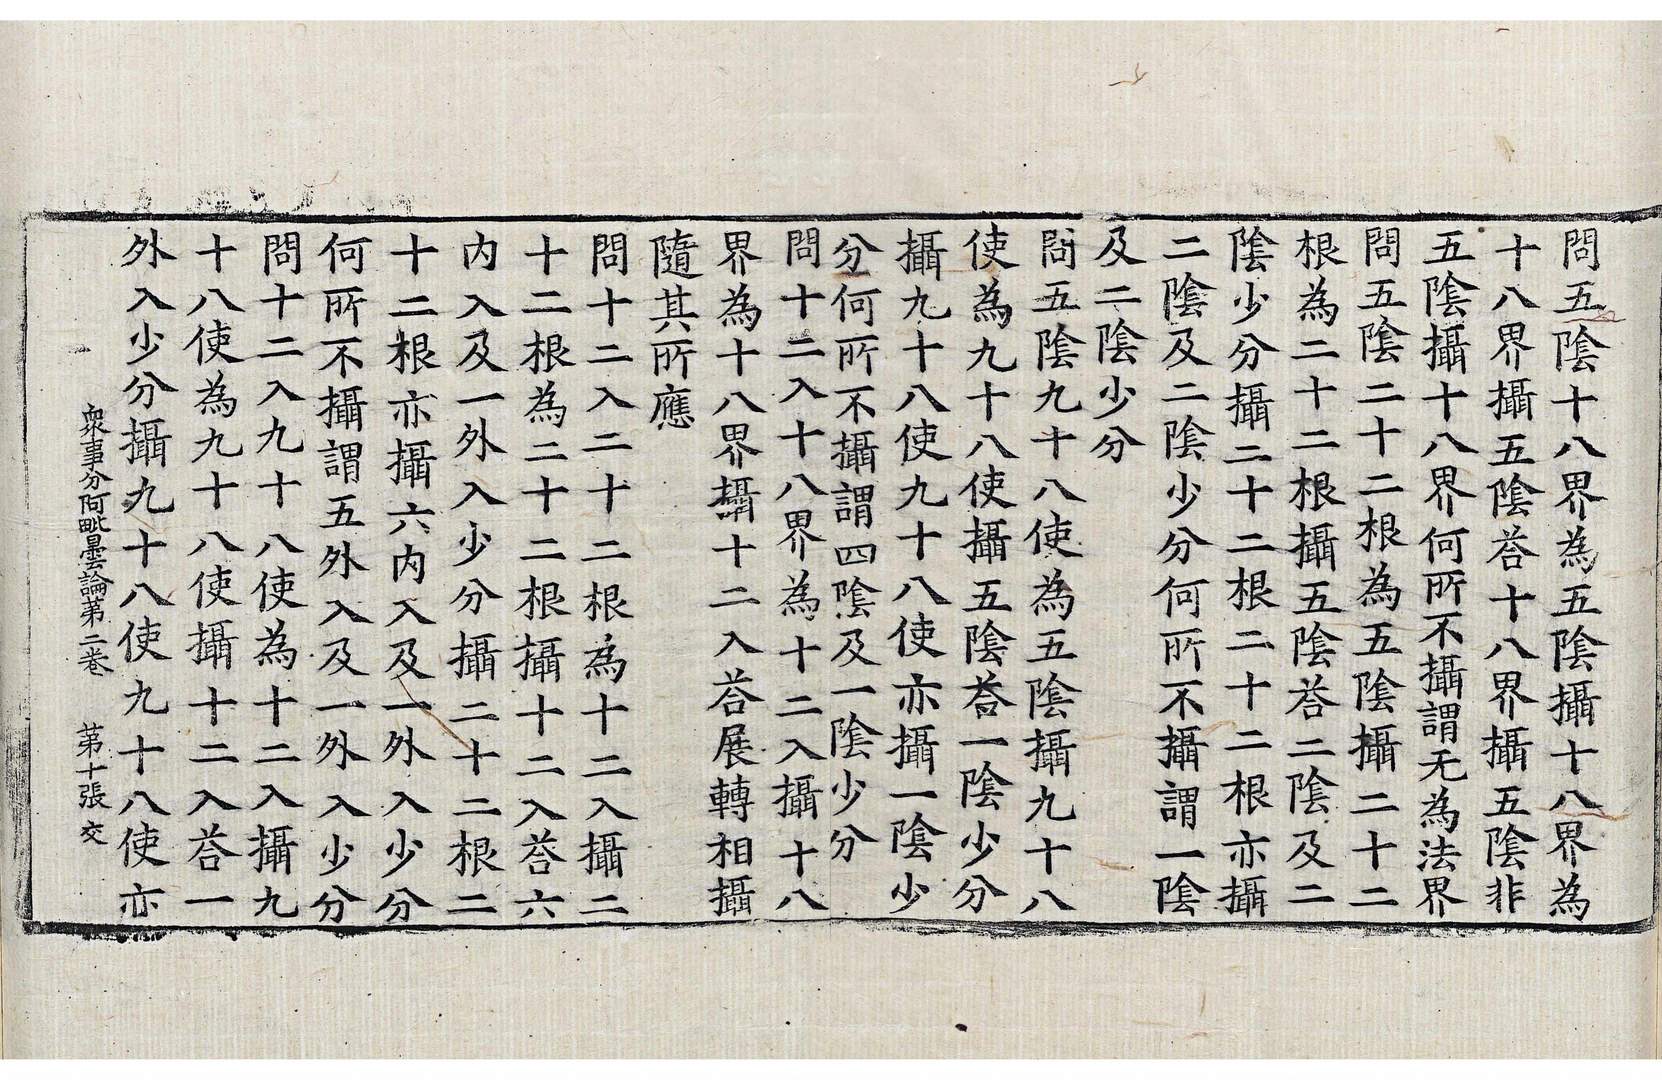 問五陰十八界為五陰攝十八界為
十八界攝五陰荅十八界攝五陰非
五陰攝十八界何所不攝謂无為法界
問五陰二十二根為五陰攝二十二
根為二十二根攝五陰荅二陰及二
陰少分攝二十二根二十二根亦攝
二陰及二陰少分何所不攝謂一陰
及二陰少分
問五陰九十八使為五陰攝九十八
使為九十八使攝五陰荅一陰少分
攝九十八使九十八使亦攝一陰少
分何所不攝謂四陰及一陰少分
問十二入十八界為十二入攝十八
界為十八界攝十二入荅展轉相攝
隨其所應
問十二入二十二根為十二入攝二
十二根為二十二根攝十二入荅六
内入及一外入少分攝二十二根二
十二根亦攝六内入及一外入少分
何所不攝謂五外入及一外入少分
問十二入九十八使為十二入攝九
十八使為九十八使攝十二入荅一
外入少分攝九十八使九十八使亦
衆事分阿毗曇論第二卷 第十張 交